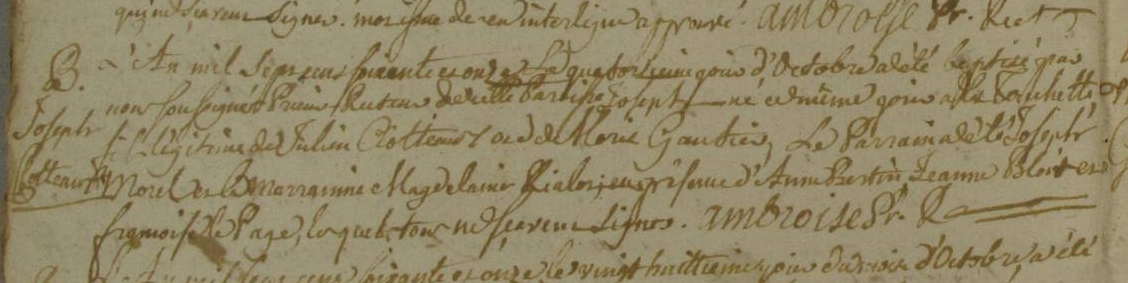 qui ne scavent signer. mot rayé de en interligne approuvé. ambroise Pr. Rect
B. L'An mil sept cens soixante et onze Le quatorzieme jour d'Octobre a été baptisé par
nous soussignés Prieur Recteur de cette Paroisse Joseph né ce même jour a la Touchette
Joseph fils légitime de Julien Cotteaux et de Marie Gautier, Le Parrain a été Joseph
Cotteaux Morel et la marrainne Magdelaine Rialor, en présence d'Anne Bertin Jeanne Bloit et
francoise le Page, lesquels tous ne scavent signer. ambroise Pr. R
L'An mil sept cens soixante et onze le vingt huittieme jour du mois d'Octobre, a été